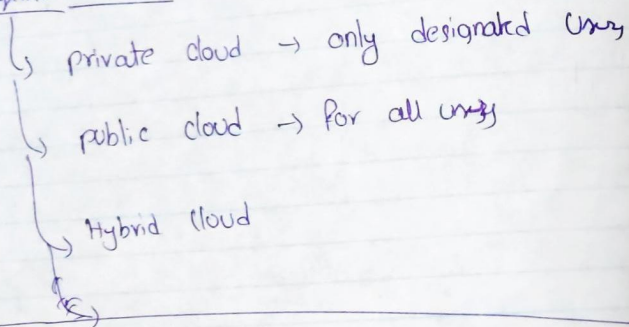 ↳ private cloud → only designated users
↳ public cloud → for all users
↳ Hybrid cloud